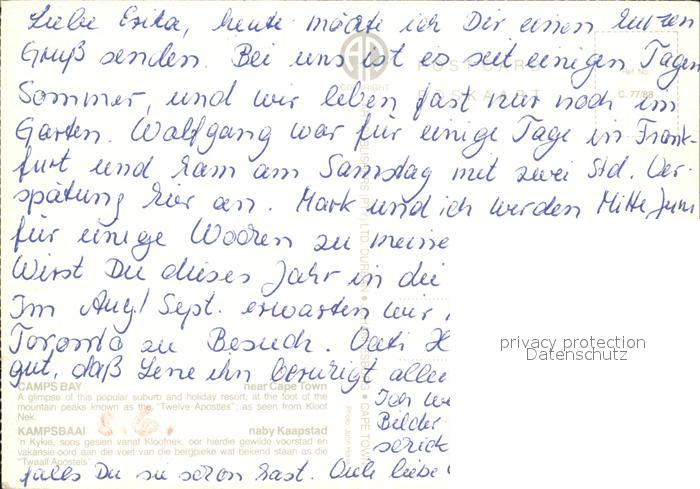 Liebe Erika, heute möchte ich Dir einen kurzen
Gruß senden. Bei uns ist es seit einigen Tagen
Sommer, und wir leben fast nur noch im
Garten. Wolfgang war für einige Tage in Frank-
furt und kam am Samstag mit zwei Std. Ver-
spätung hier an. Mark und ich werden Mitte Juni
für einige Wochen zu meine
Wirst Du dieses Jahr in die
Im Aug/Sept. erwarten wir
Toronto zu Besuch. Vati
gut, daß Lene ihn beruhigt
Ich
Bilder
schick
falls Du sie schon hast. Viele liebe
POSTCARD
POSKAART
COPYRIGHT
Ref. No.
C. 77/88
privacy protection
Datenschutz
CAMPS BAY near Cape Town
A glimpse of this popular suburb and holiday resort, at the foot of the
mountain peaks known as the "Twelve Apostles", as seen from Kloof
Nek.
KAMPSBAAI naby Kaapstad
'n Kykie, soos gesien vanaf Kloofnek, oor hierdie gewilde voorstad en
vakansie-oord aan die voet van die bergpieke wat bekend staan as die
"Twaalf Apostels"
CAPE TOWN